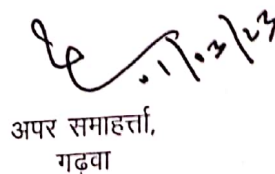 01/03/23
अपर समाहर्त्ता,
गढ़वा